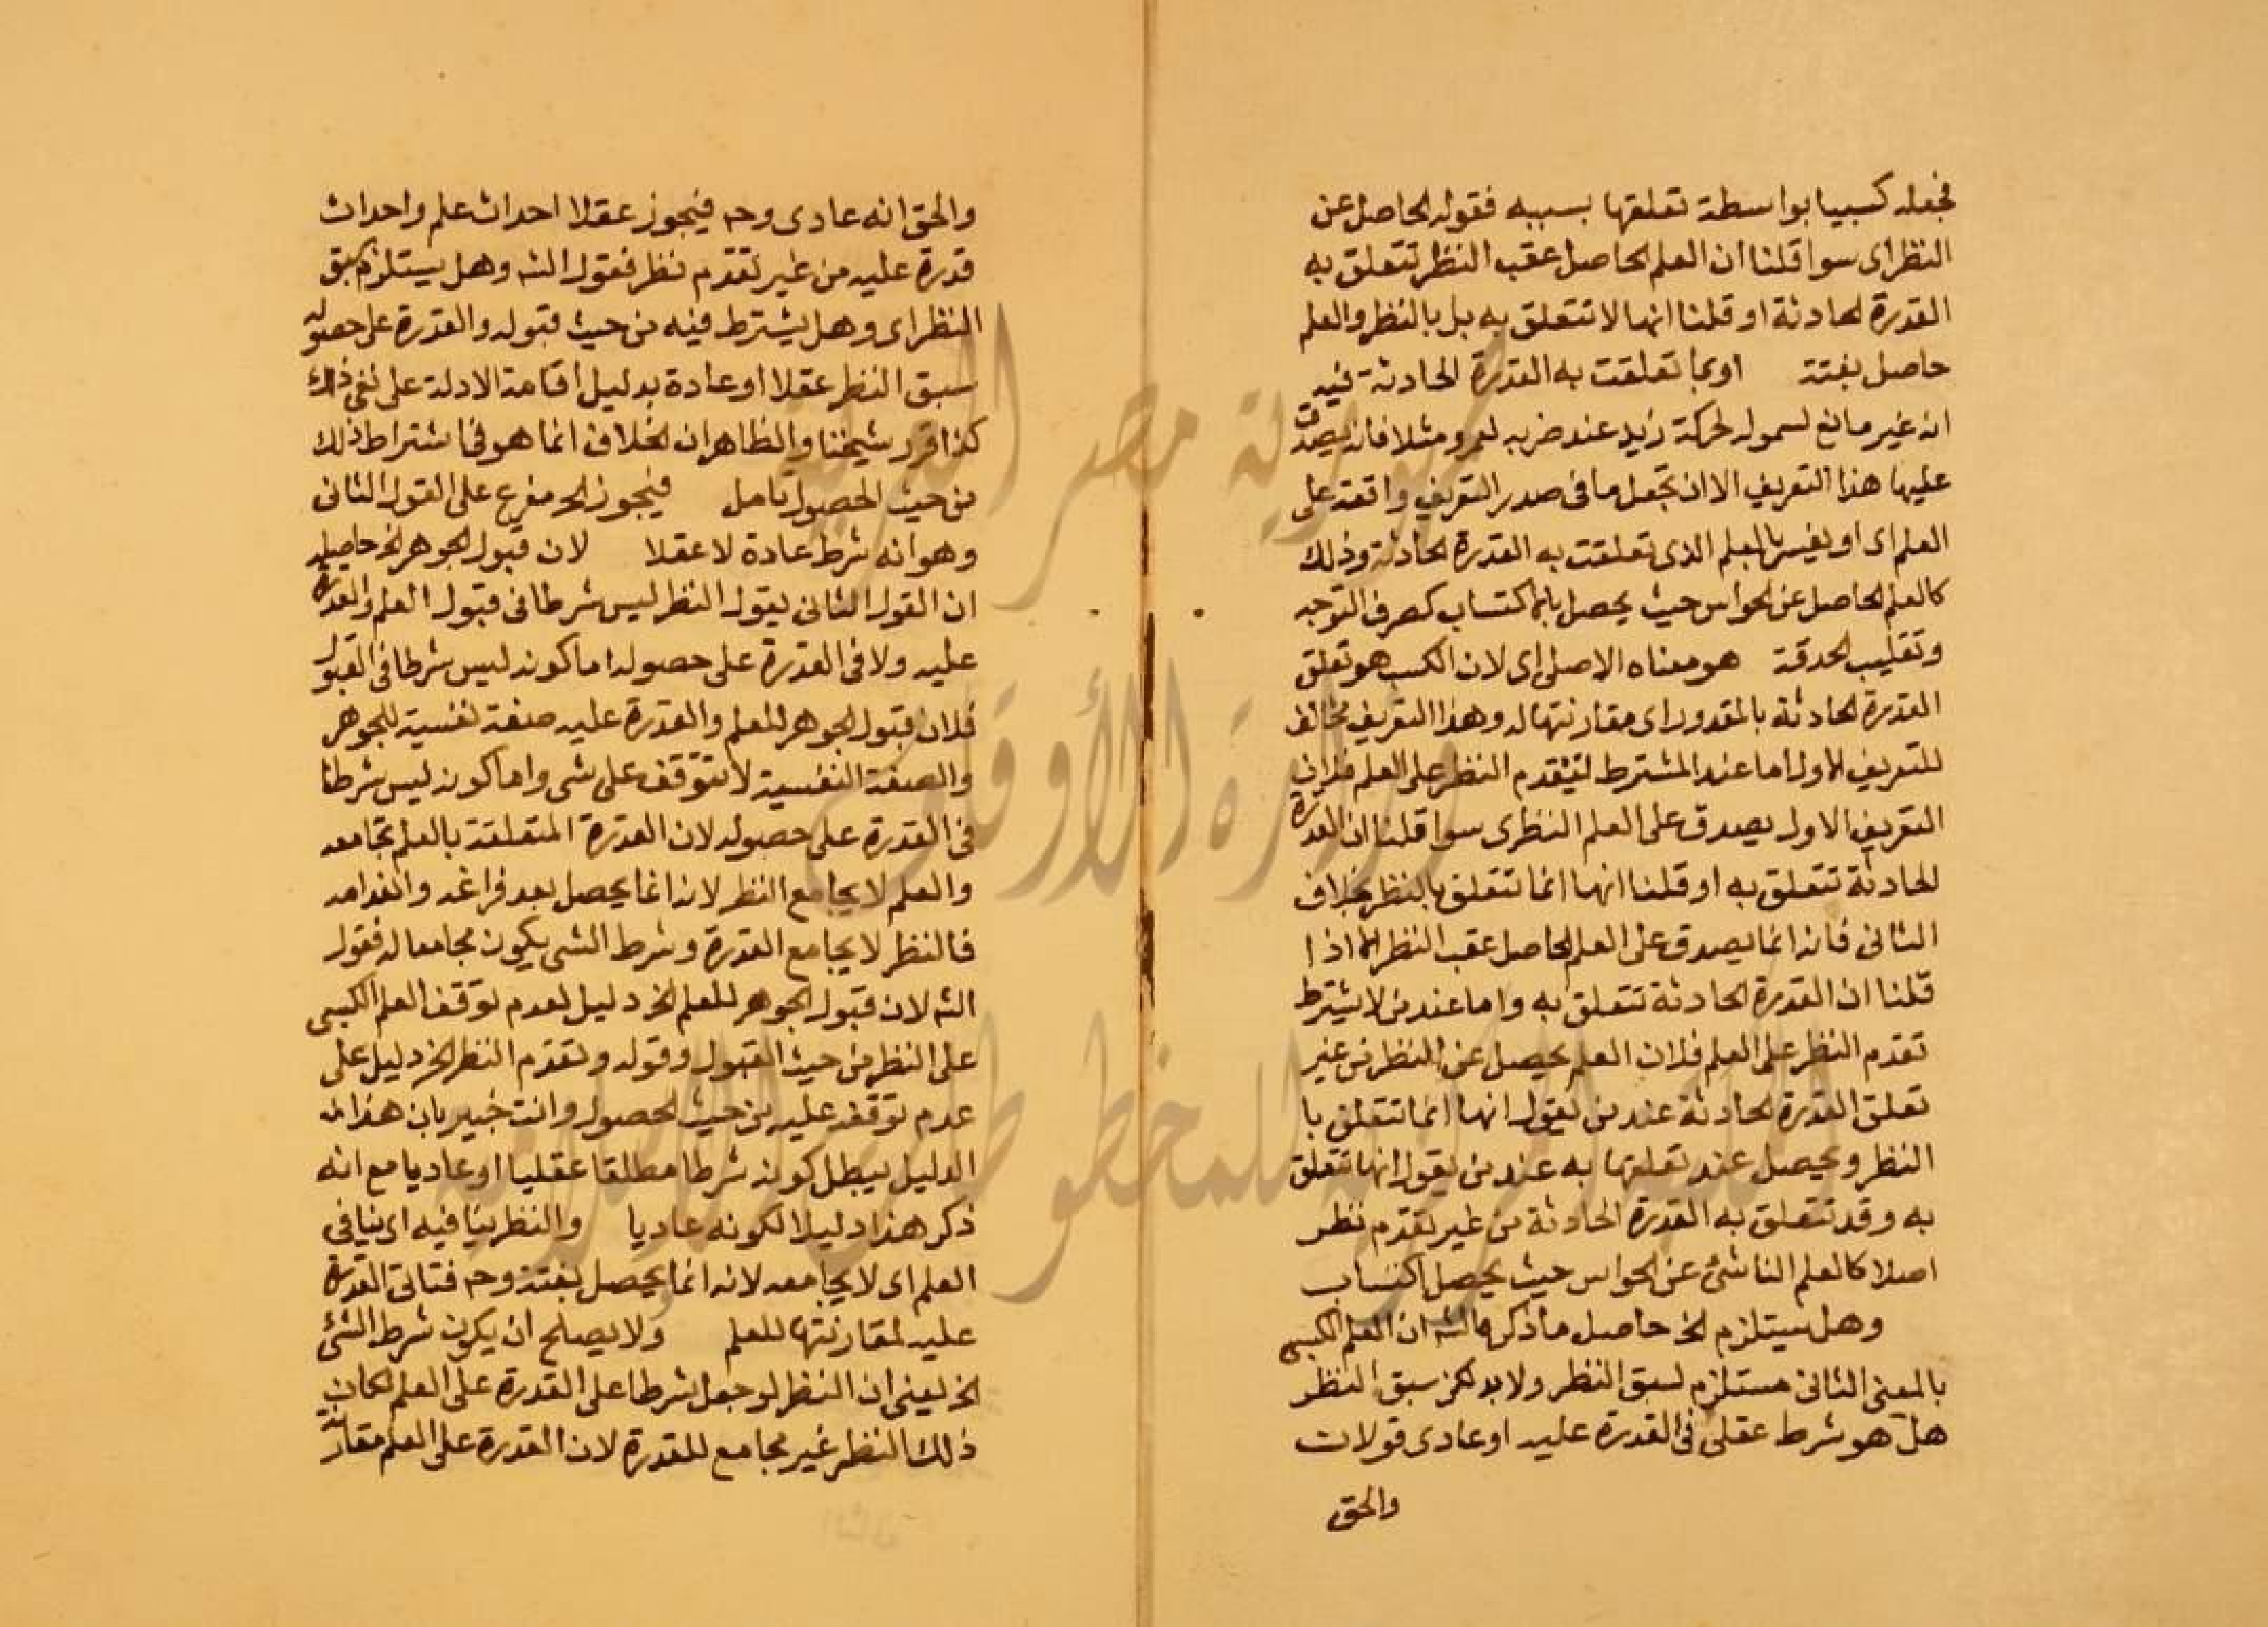 فجعله كسبيا بواسطة تعلقها بسببه فقوله الحاصل عن
النظر اى سوا قلنا ان العلم الحاصل عقب النظر تتعلق به
القدرة الحادثة او قلنا انها لا تتعلق به بل بالنظر والعلم
حاصل بغتة او بما تعلقت به القدرة الحادثة فيه
انه غير مانع لسموله لحركة زيد عند ضربه لعمرو مثلا فانه يصدق
عليها هذا التعريف الا ان تجعل ما فى صدر التعريف واقعة على
العلم اى او يفسر بالعلم الذى تعلقت به القدرة الحادثة وذلك
كالعلم الحاصل عن الحواس حيث يحصل باكتساب كصرف التوجه
وتقليب الحدقة هو معناه الاصلى اى لان الكسب هو تعلق
القدرة الحادثة بالمقدور اى مقارنتها له وهذا التعريف مخالف
للتعريف الاول اما عند المشترط لتقدم النظر على العلم فلان
التعريف الاول يصدق على العلم النظرى سوا قلنا ان القدرة
الحادثة تتعلق به او قلنا انها انما تتعلق بالنظر بخلاف
الثانى فانه انما يصدق على العلم الحاصل عقب النظر اذا
قلنا ان القدرة الحادثة تتعلق به واما عند من لا يشترط
تقدم النظر على العلم فلان العلم يحصل عن النظر من غير
تعلق القدرة الحادثة عند من يقول انها انما تتعلق با
النظر ويحصل عند تعلقها به عند من يقول انها تتعلق
به وقد تتعلق به القدرة الحادثة من غير تقدم نظر
اصلا كالعلم الناشئ عن الحواس حيث يحصل اكتساب
وهل يستلزم الخ حاصل ما ذكره الشه ان العلم الكسبى
بالمعنى الثانى مستلزم لسبق النظر ولا بد لكن سبق النظر
هل هو شرط عقلى فى القدرة عليه او عادى قولان
والحق
والحق انه عادى وحه فيجوز عقلا احداث علم واحداث
قدرة عليه من غير تقدم نظر فقول الشه وهل يستلزم سبق
النظر اى وهل يشترط فيه من حيث قبوله والقدرة على حصوله
سبق النظر عقلا او عادة بدليل اقامة الادلة على نفى ذلك
كذا قرر شيخنا والظاهر ان الخلاف انما هو فى اشتراط ذلك
من حيث الحصول تامل فيجوز الخ مفرع على القول الثانى
وهو انه شرط عادة لا عقلا لان قبول الجوهر الخ حاصله
ان القول الثانى يقول النظر ليس شرطا فى قبول العلم والقدرة
عليه ولا فى القدرة على حصوله اما كونه ليس شرطا فى القبول
فلان قبول الجوهر للعلم والقدرة عليه صفة نفسية للجوهر
والصفة النفسية لا تتوقف على شى واما كونه ليس شرطا
فى القدرة على حصوله لان القدرة المتعلقة بالعلم تجامعه
والعلم لا يجامع النظر لانه انما يحصل بعد فراغه وانعدامه
فالنظر لا يجامع القدرة وشرط الشى يكون مجامعا له فقول
الشه لان قبول الجوهر للعلم الخ دليل لعدم توقف العلم الكسبى
على النظر من حيث القبول وقوله ولتقدم النظر الخ دليل على
عدم توقفه عليه من حيث الحصول وانت خبير بان هذا
الدليل يبطل كونه شرطا مطلقا عقليا او عاديا مع انه
ذكر هذا دليلا لكونه عاديا والنظر ينافيه اى ينافى
العلم اى لا يجامعه لانه انما يحصل بغتة وحه فتاتى القدرة
عليه لمقارنتها للعلم ولا يصلح ان يكون شرط الشئ
الخ يعنى ان النظر لو جعل شرطا على القدرة على العلم لكان
ذلك النظر غير مجامع للقدرة لان القدرة على العلم مقارنة
جمهورية مصر العربية
وزارة الأوقاف
المكتبة المركزية للمخطوطات الإسلامية